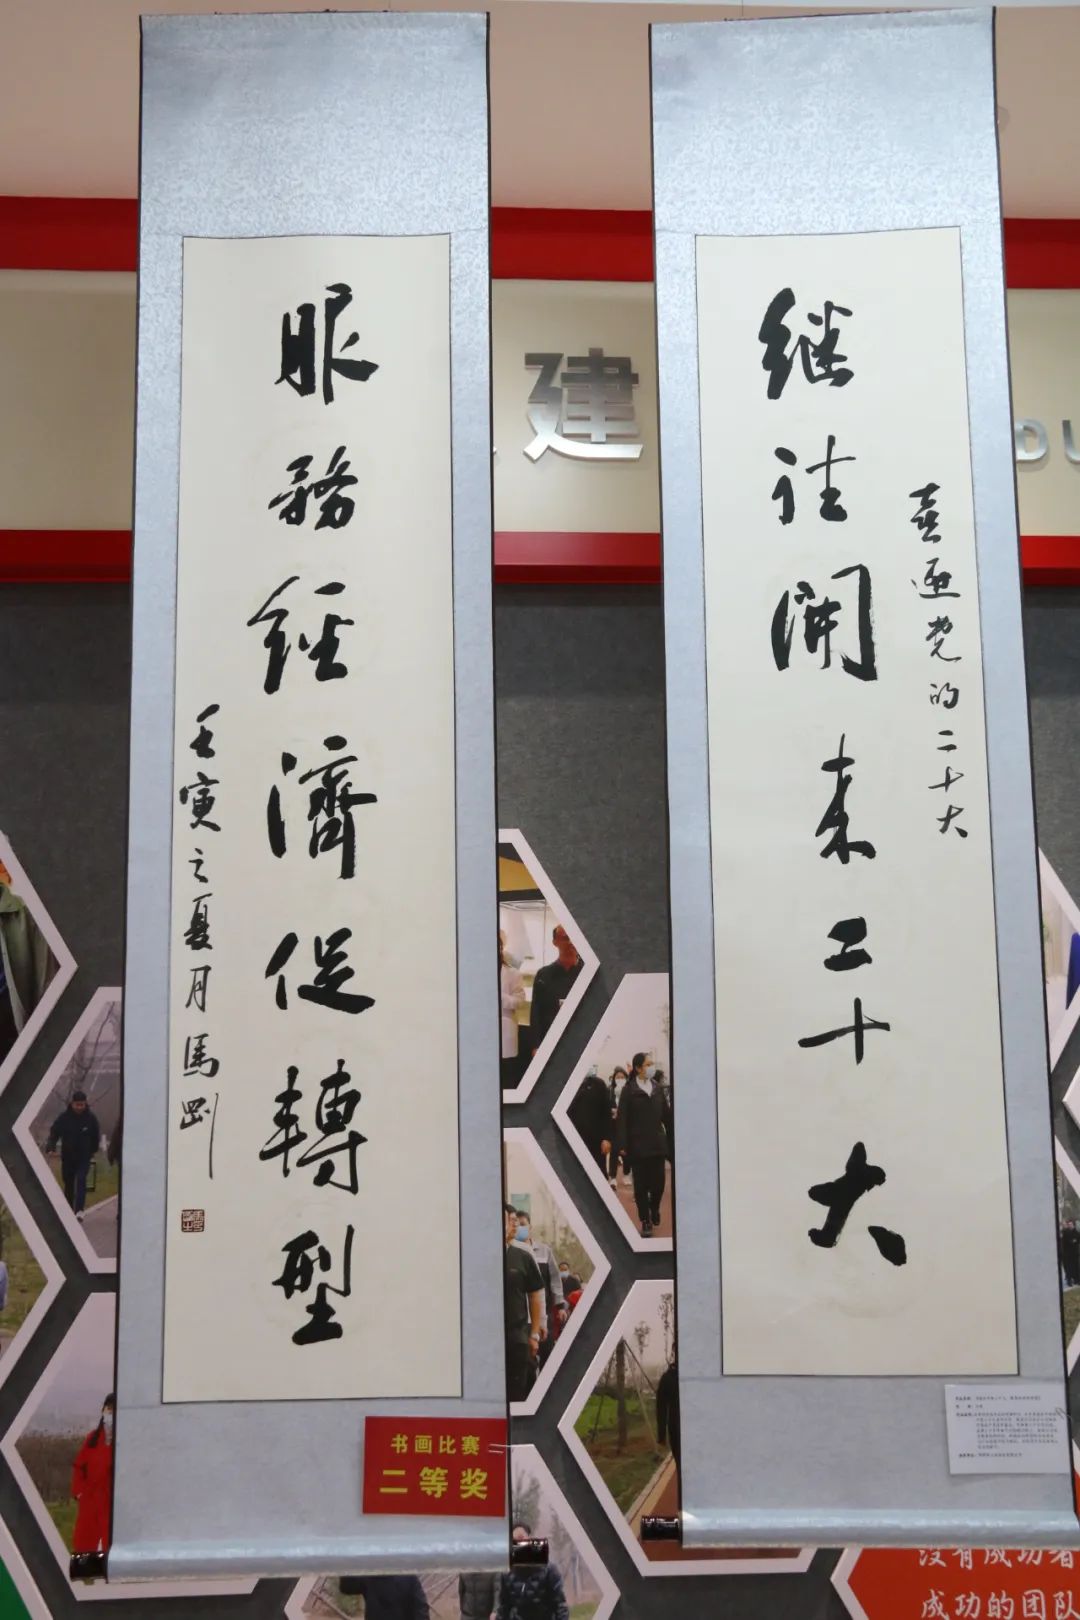 喜迎党的二十大
继往開来二十大
服務経濟促轉型
壬寅之夏月馬剛
建
DU
书画比赛
二等奖
没有成功者
成功的团队